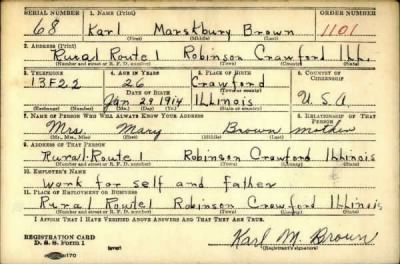 SERIAL NUMBER 1. NAME (Print) ORDER NUMBER
68 Karl Marskbury Brown 1101
(First) (Middle) (Last)
2. ADDRESS (Print)
Rural Route 1 Robinson Crawford Ill.
(Number and street or R. F. D. number) (Town) (County) (State)
3. TELEPHONE 4. AGE IN YEARS 5. PLACE OF BIRTH 6. COUNTRY OF CITIZENSHIP
13F22 26 Crawford
DATE OF BIRTH (Town or county)
Jan 29 1914 Illinois U.S.A.
(Exchange) (Number) (Mo.) (Day) (Yr.) (State or country)
7. NAME OF PERSON WHO WILL ALWAYS KNOW YOUR ADDRESS 8. RELATIONSHIP OF THAT PERSON
Mrs. Mary Brown mother
(Mr., Mrs., Miss) (First) (Middle) (Last)
9. ADDRESS OF THAT PERSON
Rural Route 1 Robinson Crawford Illinois
(Number and street or R. F. D. number) (Town) (County) (State)
10. EMPLOYER'S NAME
work for self and father
11. PLACE OF EMPLOYMENT OR BUSINESS
Rural Route 1 Robinson Crawford Illinois
(Number and street or R. F. D. number) (Town) (County) (State)
I AFFIRM THAT I HAVE VERIFIED ABOVE ANSWERS AND THAT THEY ARE TRUE.
REGISTRATION CARD
D. S. S. Form 1 (over) Karl M. Brown
(Registrant's signature)